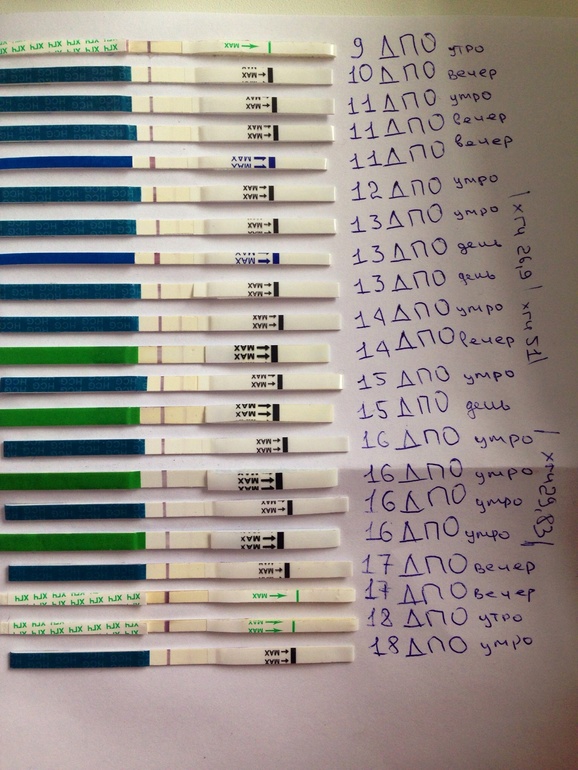 ХГЧ ХГЧ ХГЧ ХГЧ ХГЧ ХГЧ MAX 9 ДПО утро
MAX 10 ДПО вечер
MAX 11 ДПО утро
MAX 11 ДПО вечер
MAX 11 ДПО вечер
MAX 12 ДПО утро
MAX 13 ДПО утро
MAX 13 ДПО день
MAX 13 ДПО день
MAX 14 ДПО утро
MAX 14 ДПО вечер
MAX 15 ДПО утро
MAX 15 ДПО день
MAX 16 ДПО утро
MAX 16 ДПО утро
MAX 16 ДПО утро
MAX 16 ДПО утро
MAX 17 ДПО вечер
ХГЧ ХГЧ ХГЧ ХГЧ ХГЧ ХГЧ MAX 17 ДПО вечер
ХГЧ ХГЧ ХГЧ ХГЧ ХГЧ ХГЧ MAX 18 ДПО утро
MAX 18 ДПО утро
|хгч 26,9|
хгч 51|
|хгч 29,83|